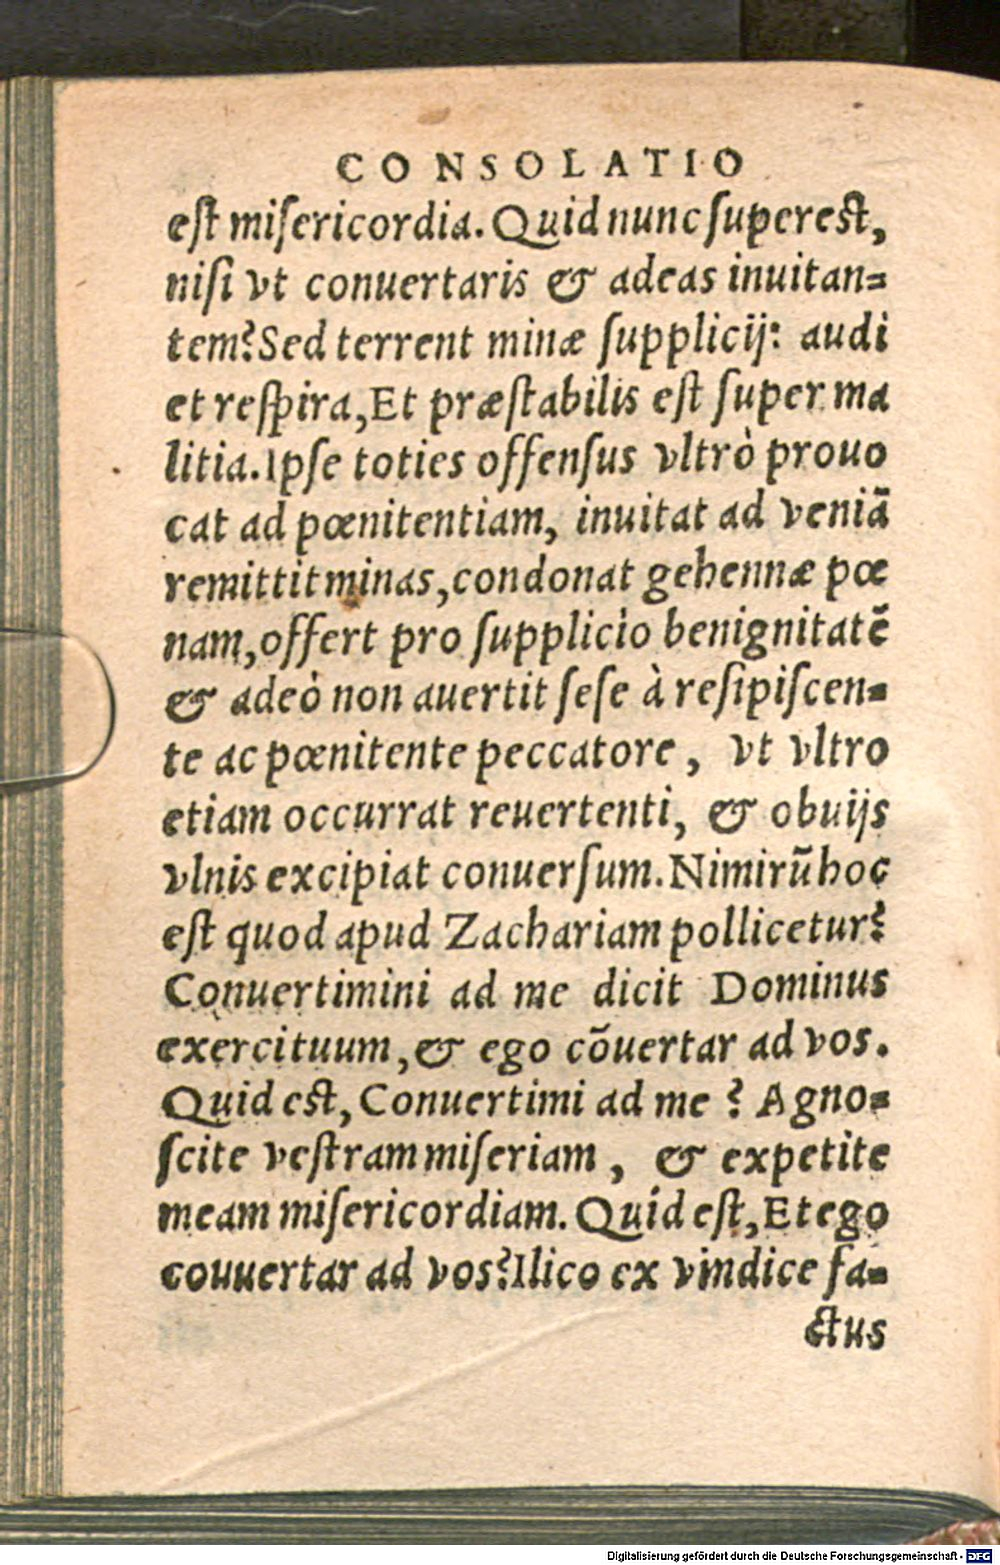 CONSOLATIO
est misericordia. Quid nunc superest,
nisi vt conuertaris & adeas inuitan=
tem? Sed terrent minæ supplicij: audi
et respira, Et præstabilis est super ma
litia. Ipse toties offensus vltrò prouo
cat ad pœnitentiam, inuitat ad veniā
remittit minas, condonat gehennæ pœ
nam, offert pro supplicio benignitatē
& adeò non auertit sese à resipiscen=
te ac pœnitente peccatore, vt vltro
etiam occurrat reuertenti, & obuijs
vlnis excipiat conuersum. Nimirū hoc
est quod apud Zachariam pollicetur?
Conuertimini ad me dicit Dominus
exercituum, & ego cōuertar ad vos.
Quid est, Conuertimi ad me? Agno=
scite vestram miseriam, & expetite
meam misericordiam. Quid est, Et ego
couuertar ad vos? Ilico ex vindice fa=
ctus
Digitalisierung gefördert durch die Deutsche Forschungsgemeinschaft - DFG